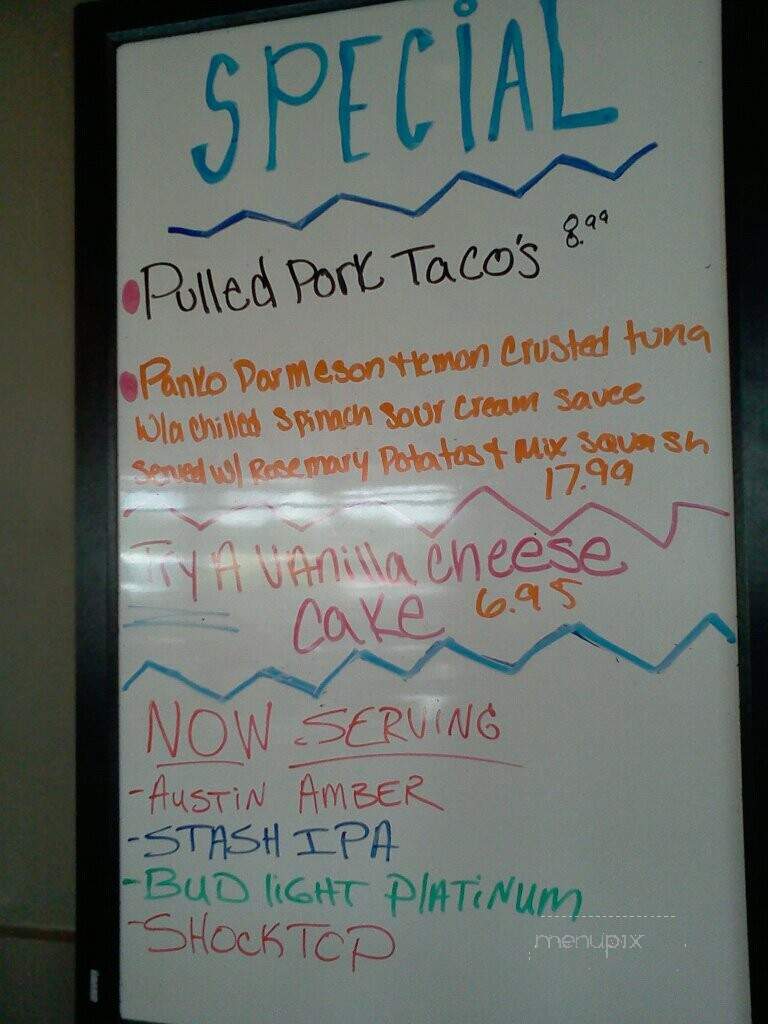 SPECIAL
Pulled Pork Taco's 8.99
Panko Parmeson + lemon Crusted tuna
W/a chilled spinach sour cream sauce
served w/ Rosemary Potatos + Mix squash
17.99
Try A vanilla cheese
cake 6.95
NOW SERVING
-AUSTIN AMBER
-STASH IPA
-BUD lIGHT PlATINUM
-SHOCKTOP
menupix